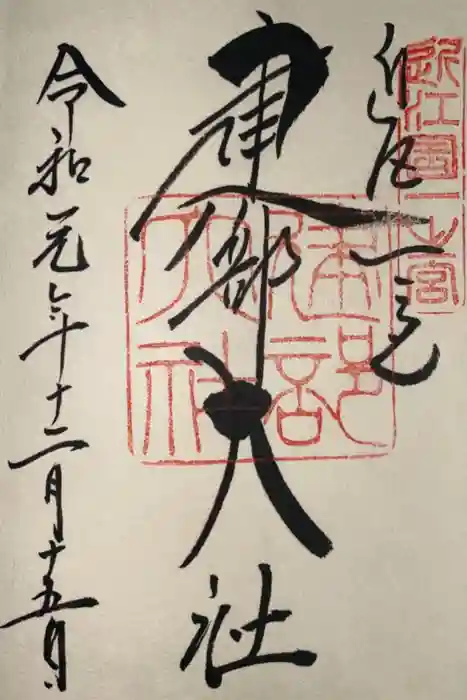 近江國一之宮
近江一宮
建部大社
建部大社
令和元年十二月十五日